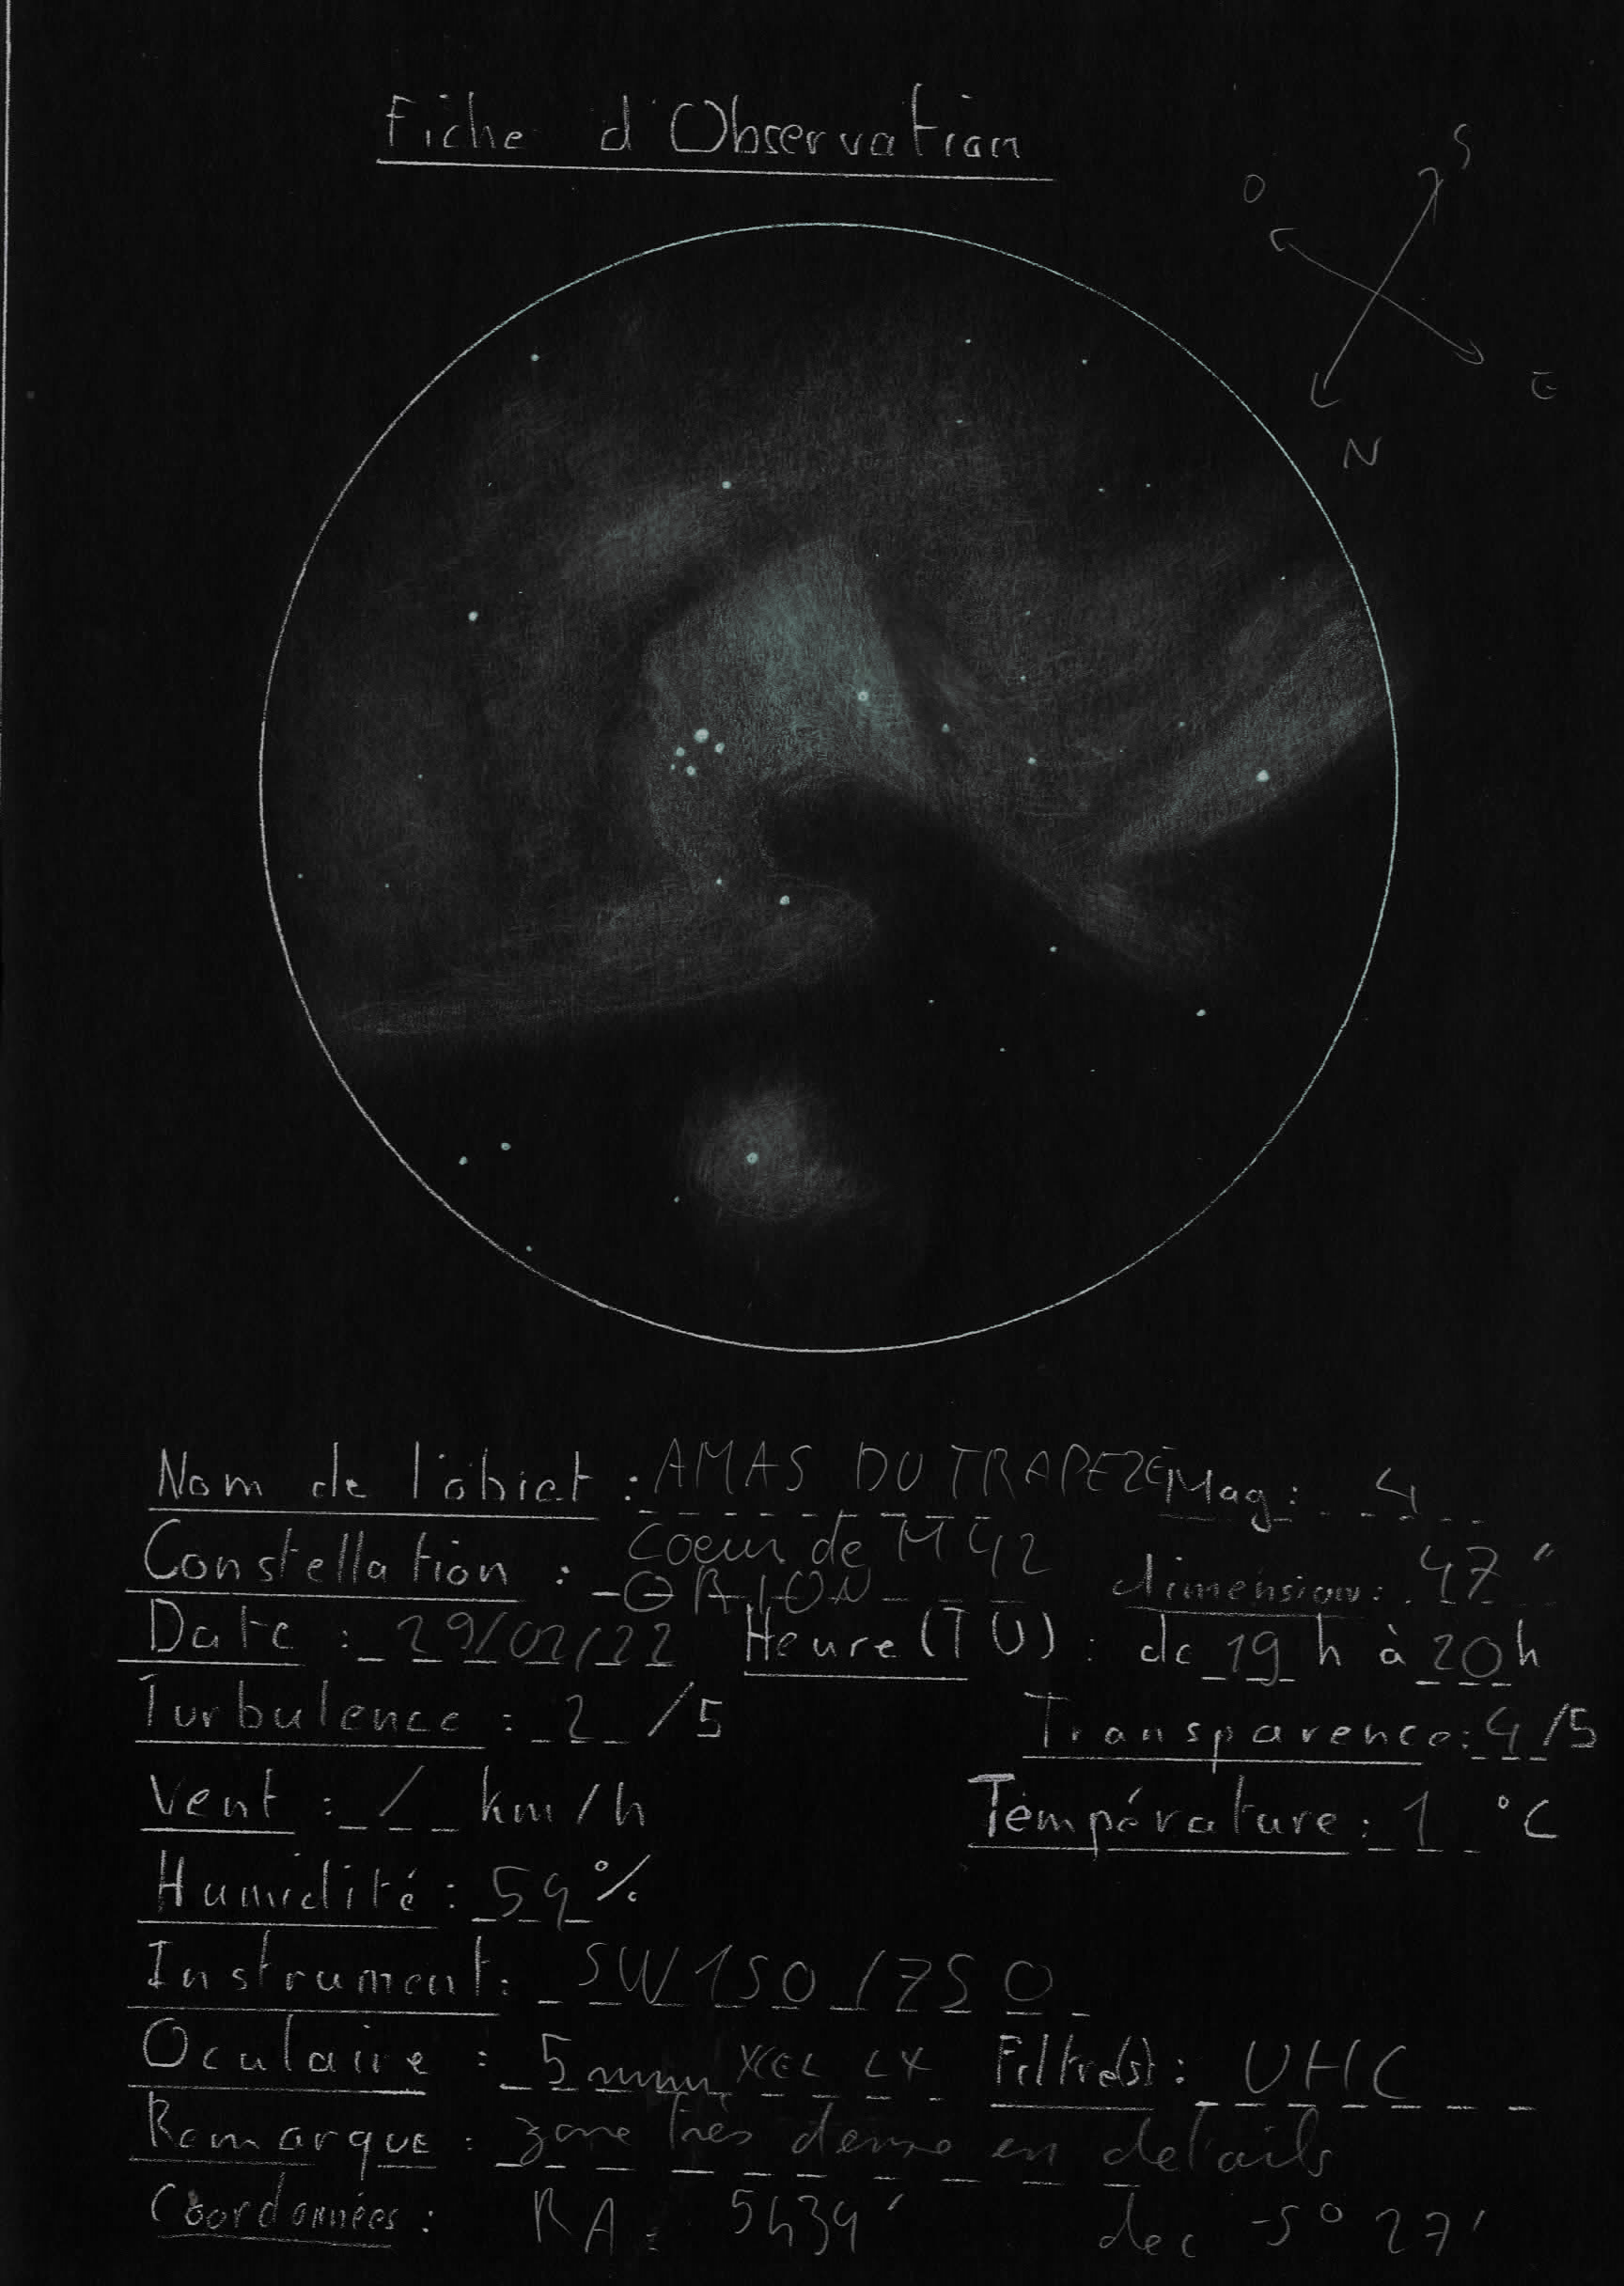 Fiche d'Observation
S
O
E
N
Nom de l'objet : AMAS DU TRAPEZE Mag : 4
Coeur de M42
Constellation : ORION dimension : 47"
Date : 29/01/22 Heure (TU) : de 19 h à 20 h
Turbulence : 2 /5 Transparence : 4 /5
Vent : / km/h Température : 1 °C
Humidité : 59 %
Instrument : SW 150 / 750
Oculaire : 5mm XCEL LX Filtre(s) : UHC
Remarque : zone très dense en détails
Coordonnées : RA = 5h34' dec -5° 27'